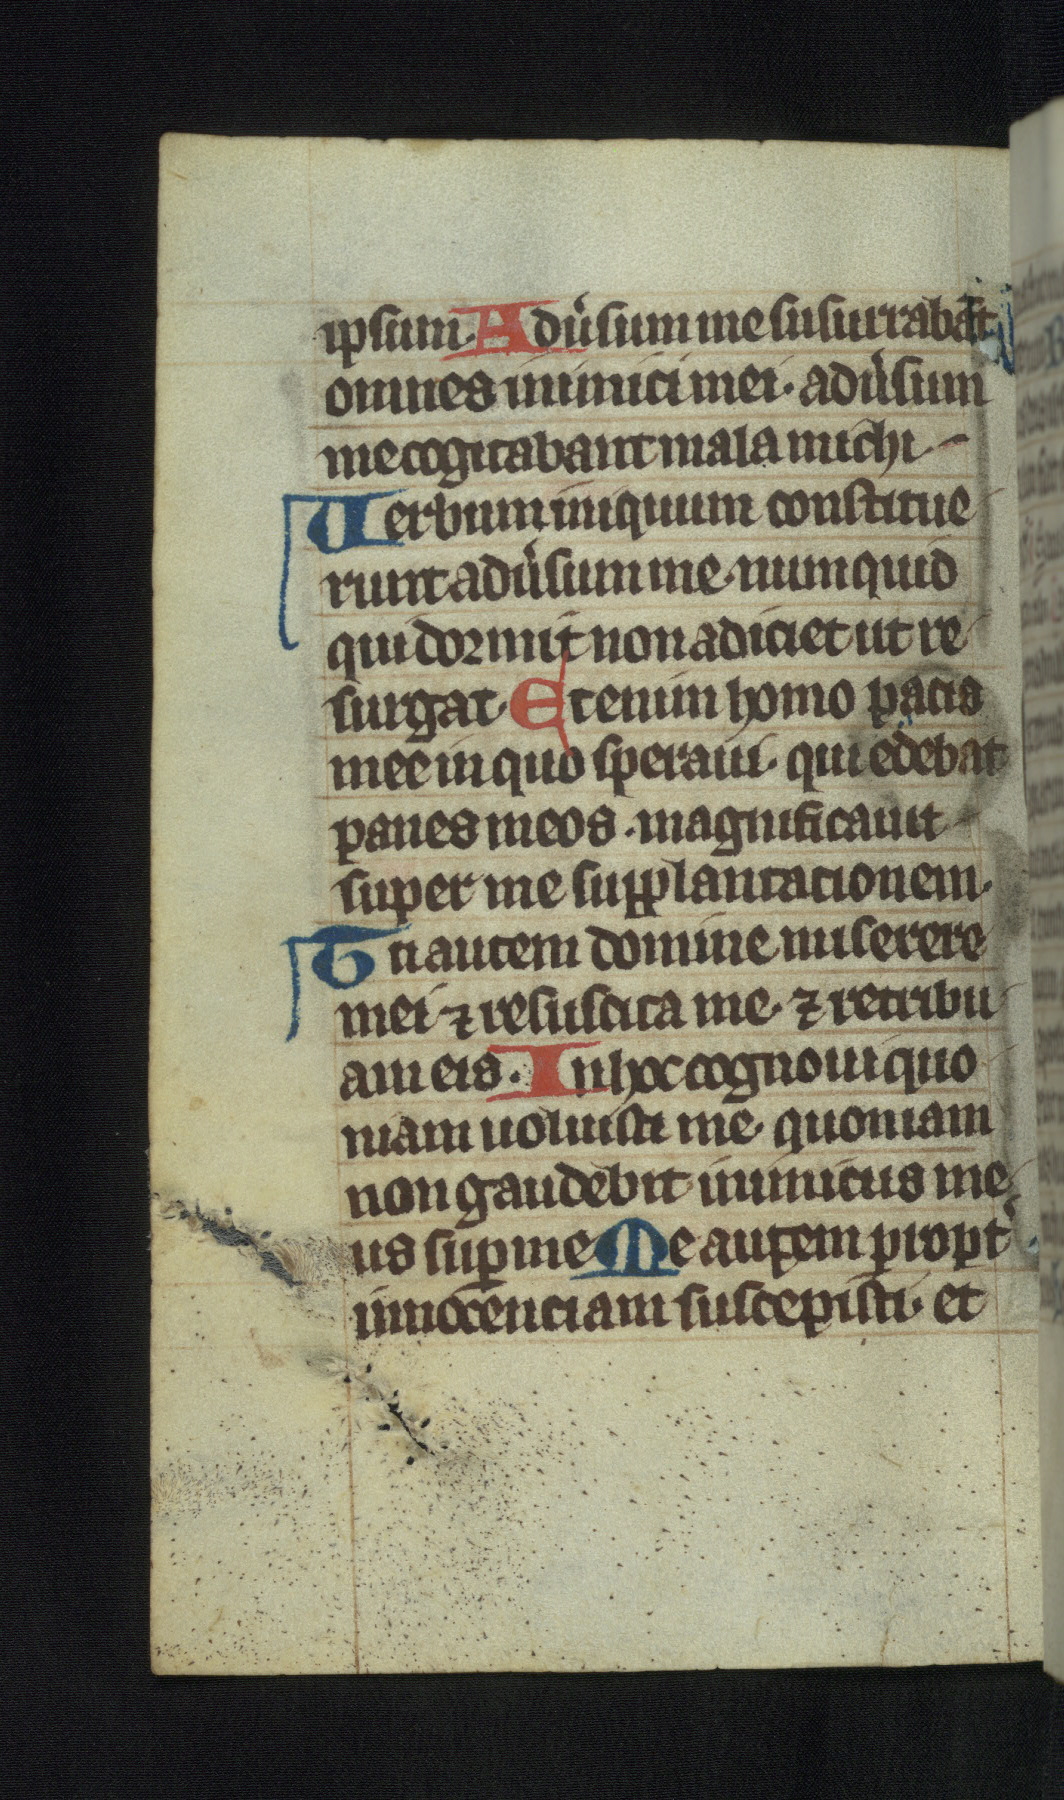 ipsum. Adu̾sum me susurrabāt
omnes inimici mei. adu̾sum
me cogitabant mala michi
Verbum iniquum constitue
runt adu̾sum me. numquid
qui dormit non adiciet ut re
surgat. Etenim homo pacis
mee in quo speraui. qui edebat
panes meos. magnificauit
super me supplantacionem.
Tu autem domine miserere
mei ⁊ resuscita me. ⁊ retribu
am eis. In hoc cognoui quo
niam uoluisti me. quoniam
non gaudebit inimicus me
us suꝑ me Me autem propt̾
innocenciam suscepisti. et